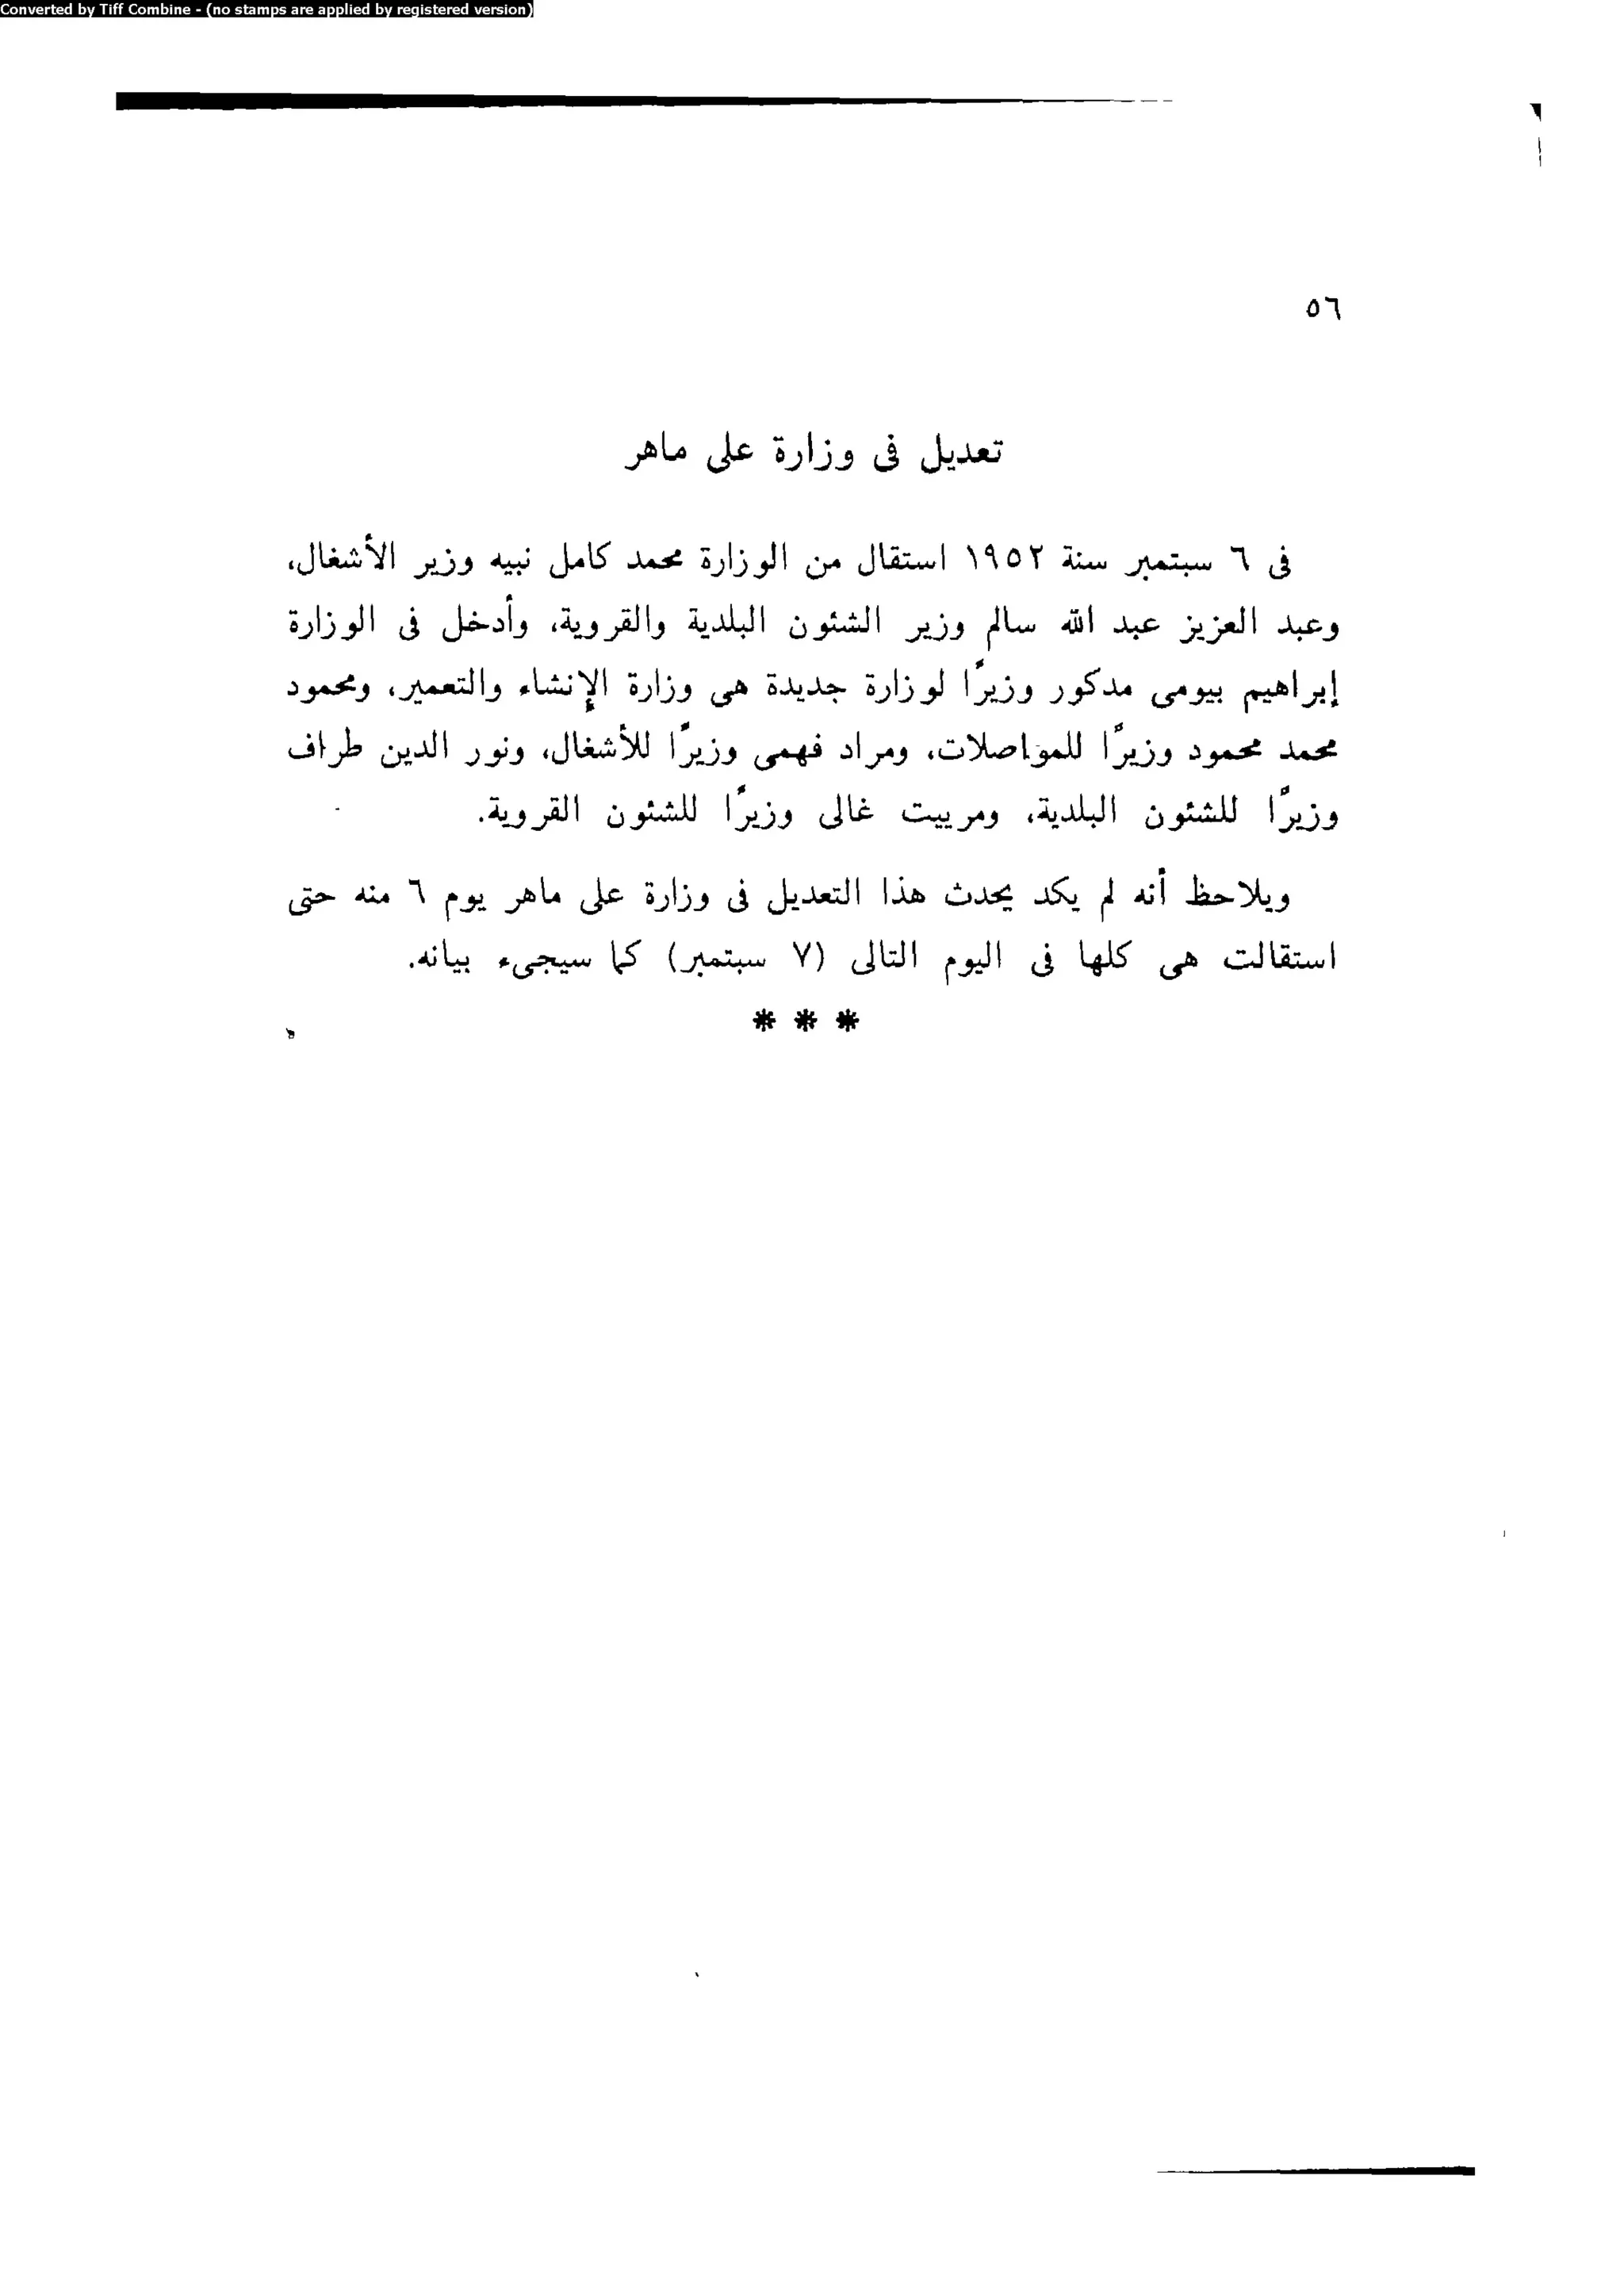 Converted by Tiff Combine - (no stamps are applied by registered version)
٥٦
تعديل فى وزارة على ماهر
فى ٦ سبتمبر سنة ١٩٥٢ استقال من الوزارة محمد كامل نبيه وزير الأشغال،
وعبد العزيز عبد الله سالم وزير الشئون البلدية والقروية، وأدخل فى الوزارة
إبراهيم بيومى مدكور وزيرًا لوزارة جديدة هى وزارة الإنشاء والتعمير، ومحمود
محمد محمود وزيرًا للمواصلات، ومراد فهمى وزيرًا للأشغال، ونور الدين طراف
وزيرًا للشئون البلدية، ومرييت غالى وزيرًا للشئون القروية.
ويلاحظ أنه لم يكد يحدث هذا التعديل فى وزارة على ماهر يوم ٦ منه حتى
استقالت هى كلها فى اليوم التالى (٧ سبتمبر) كما سيجىء بيانه.
* * *